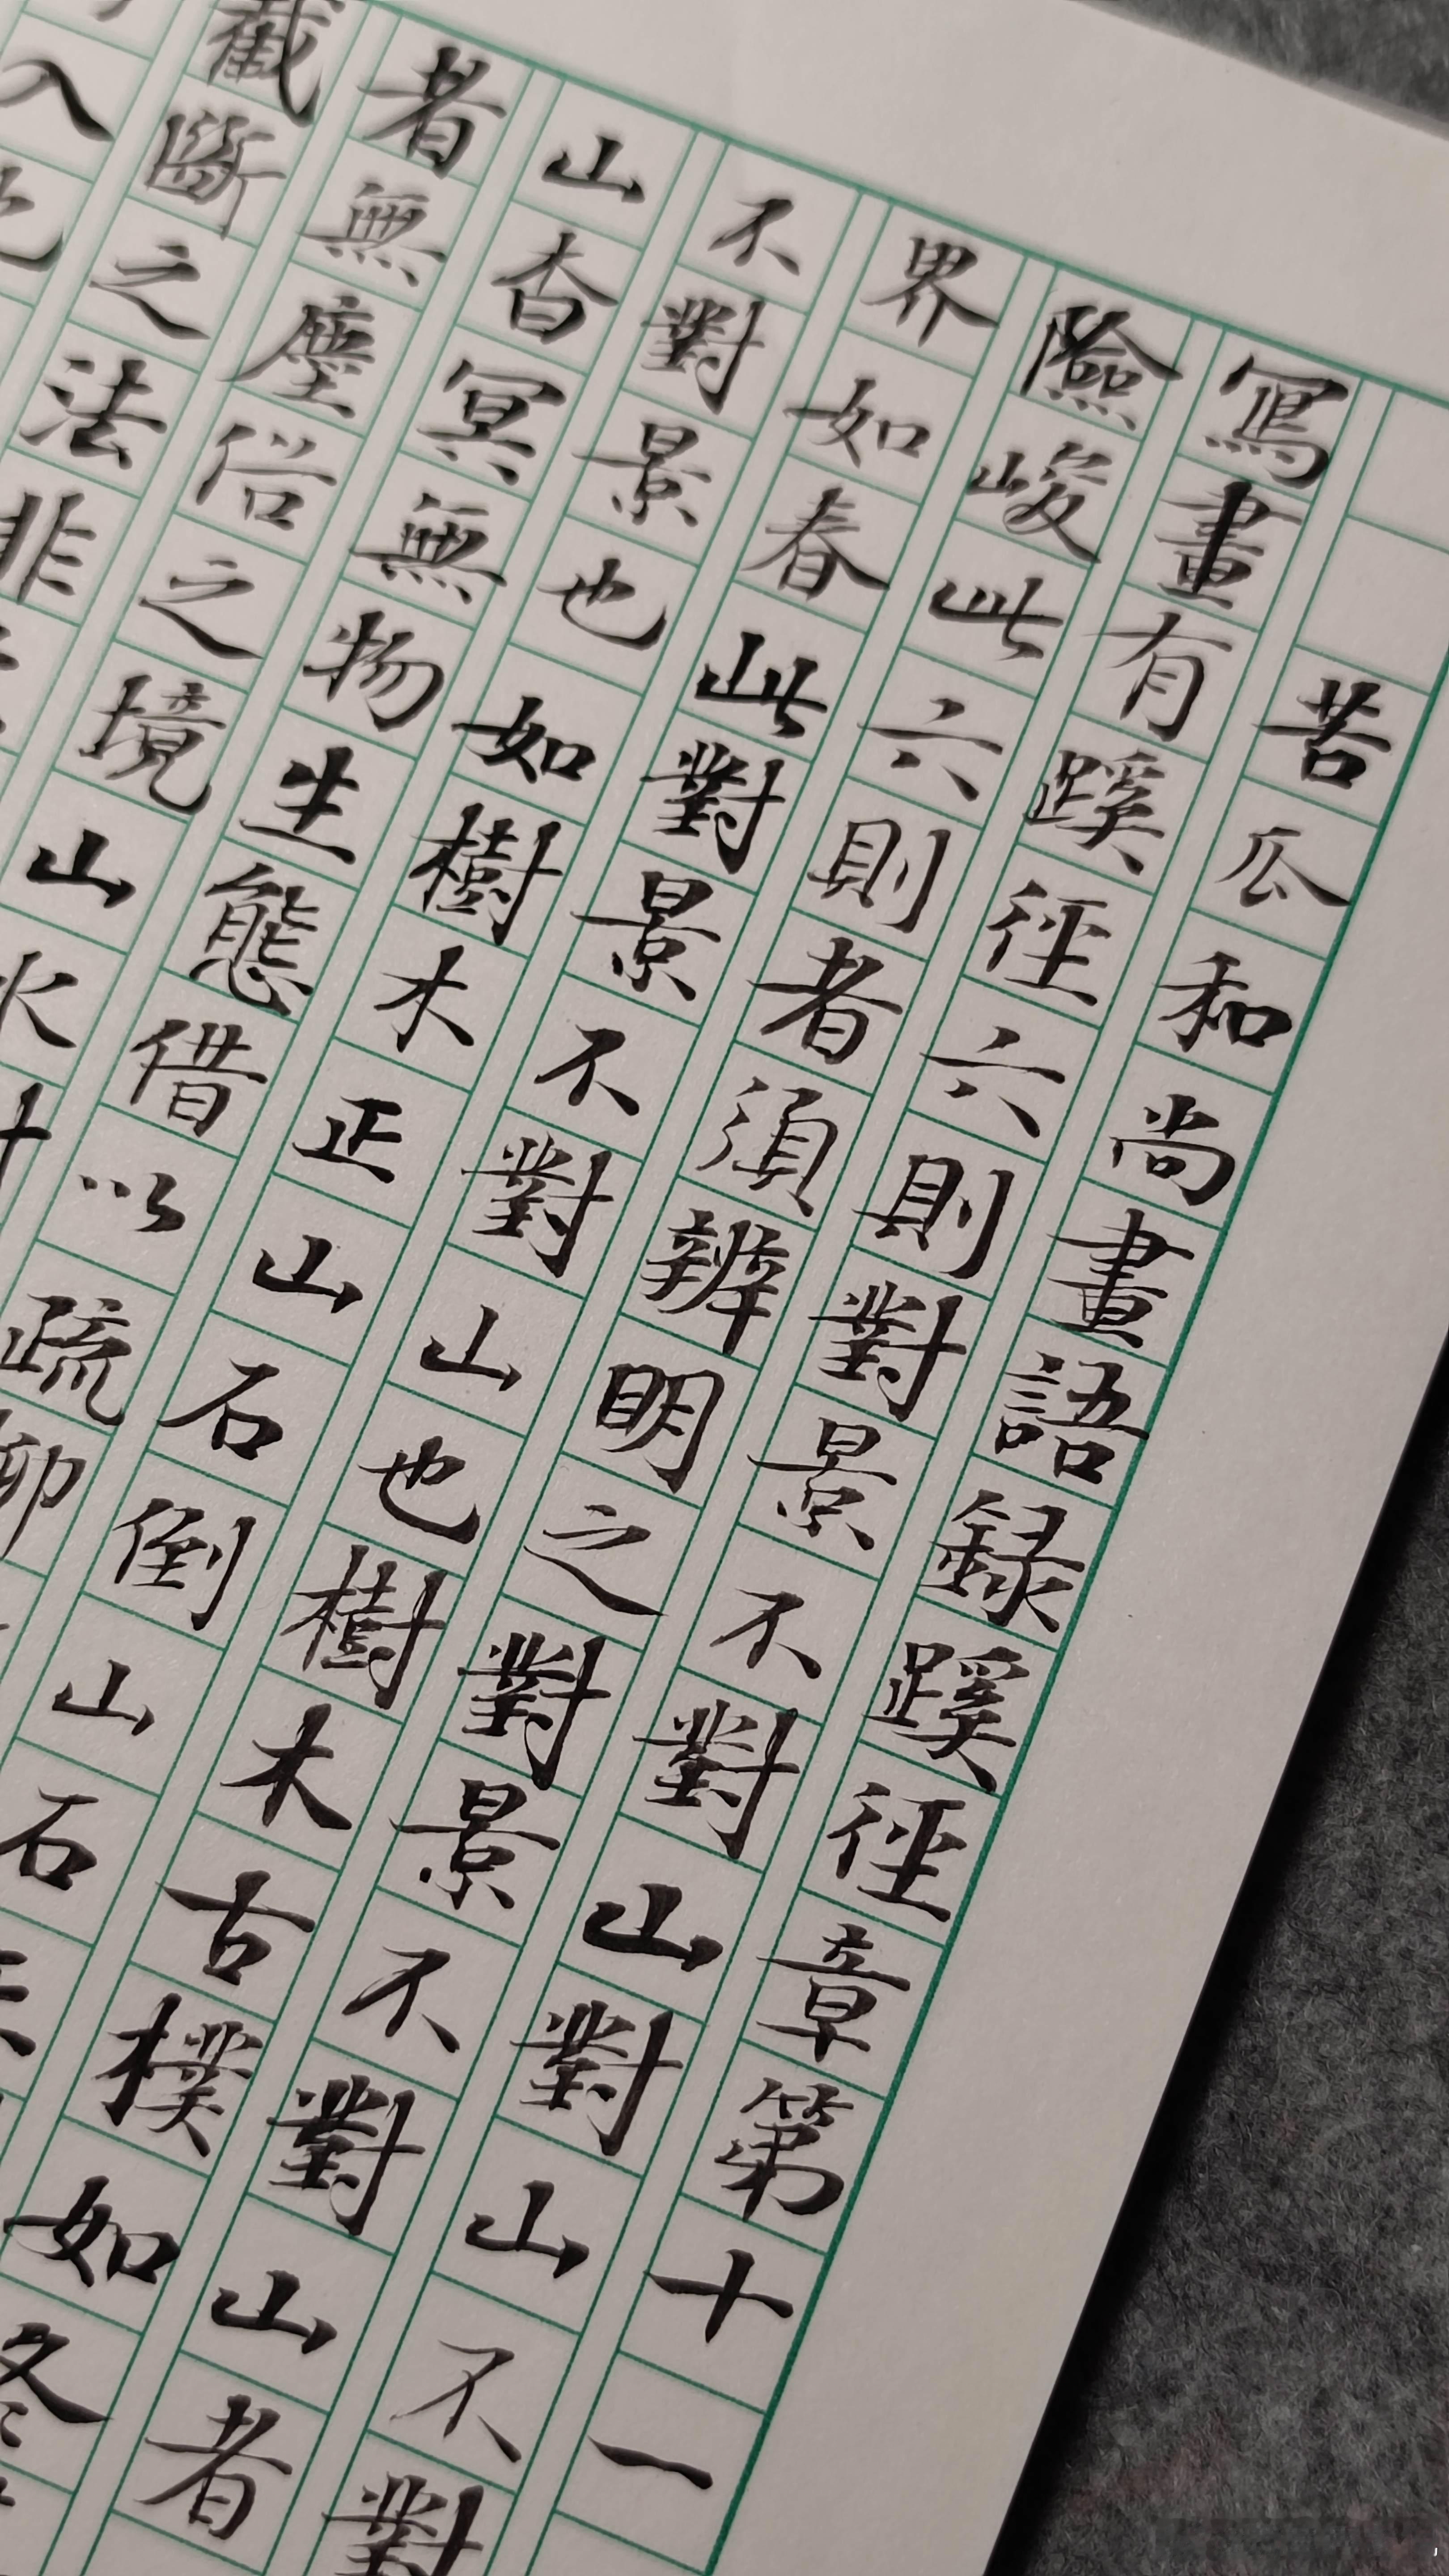 苦瓜和尚畫語録蹊徑章第十一
寫畫有蹊徑六則對景不對山對山不對
險峻此六則者須辨明之對景不對山者
界如春此對景不對山也樹木古樸如冬
不對景也如樹木正山石倒山石
山杳冥無物生態借以疏柳
者無塵俗之境山水
截斷之法非
入